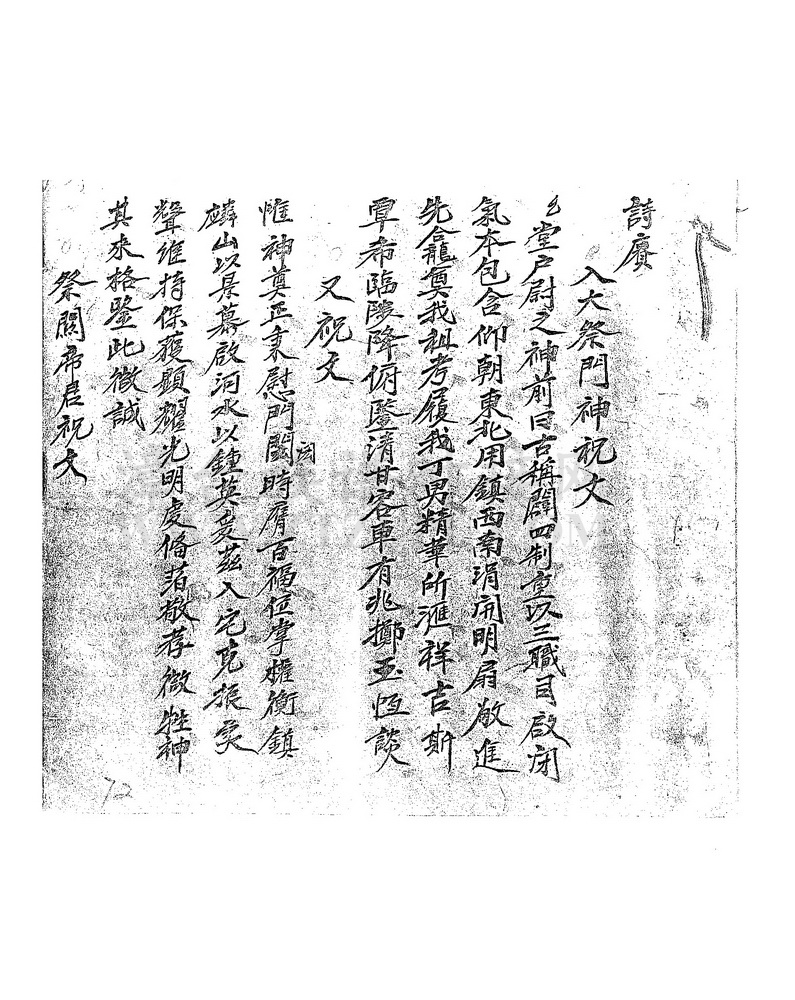 詩賡
入大祭門神祝文
堂户尉之神前曰古稱闢四制重以三職司啟闭
氣本包含仰朝東北用鎮西南涓開明扇敞進
先合龍奠我祖考履我丁男精華所滙祥吉斯
覃希臨陟降俯鑒清甘容車有兆擲玉恆談
又祝文
惟神奠正秉慰門闔時膺百福位掌權衡鎮
山以景慕啟河水以鍾英爰茲入宅克振
聲維持保護顯耀光明虔備菲敬荐微牲神
其來格鑒此微誠
祭關帝君祝文
72